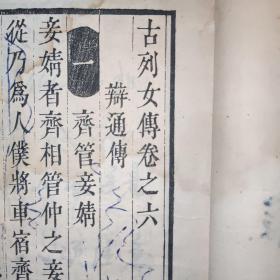 古列女傳卷之六
辯通傳
一 齊管妾婧
妾婧者齊相管仲之妾
從乃爲人僕將車宿齊